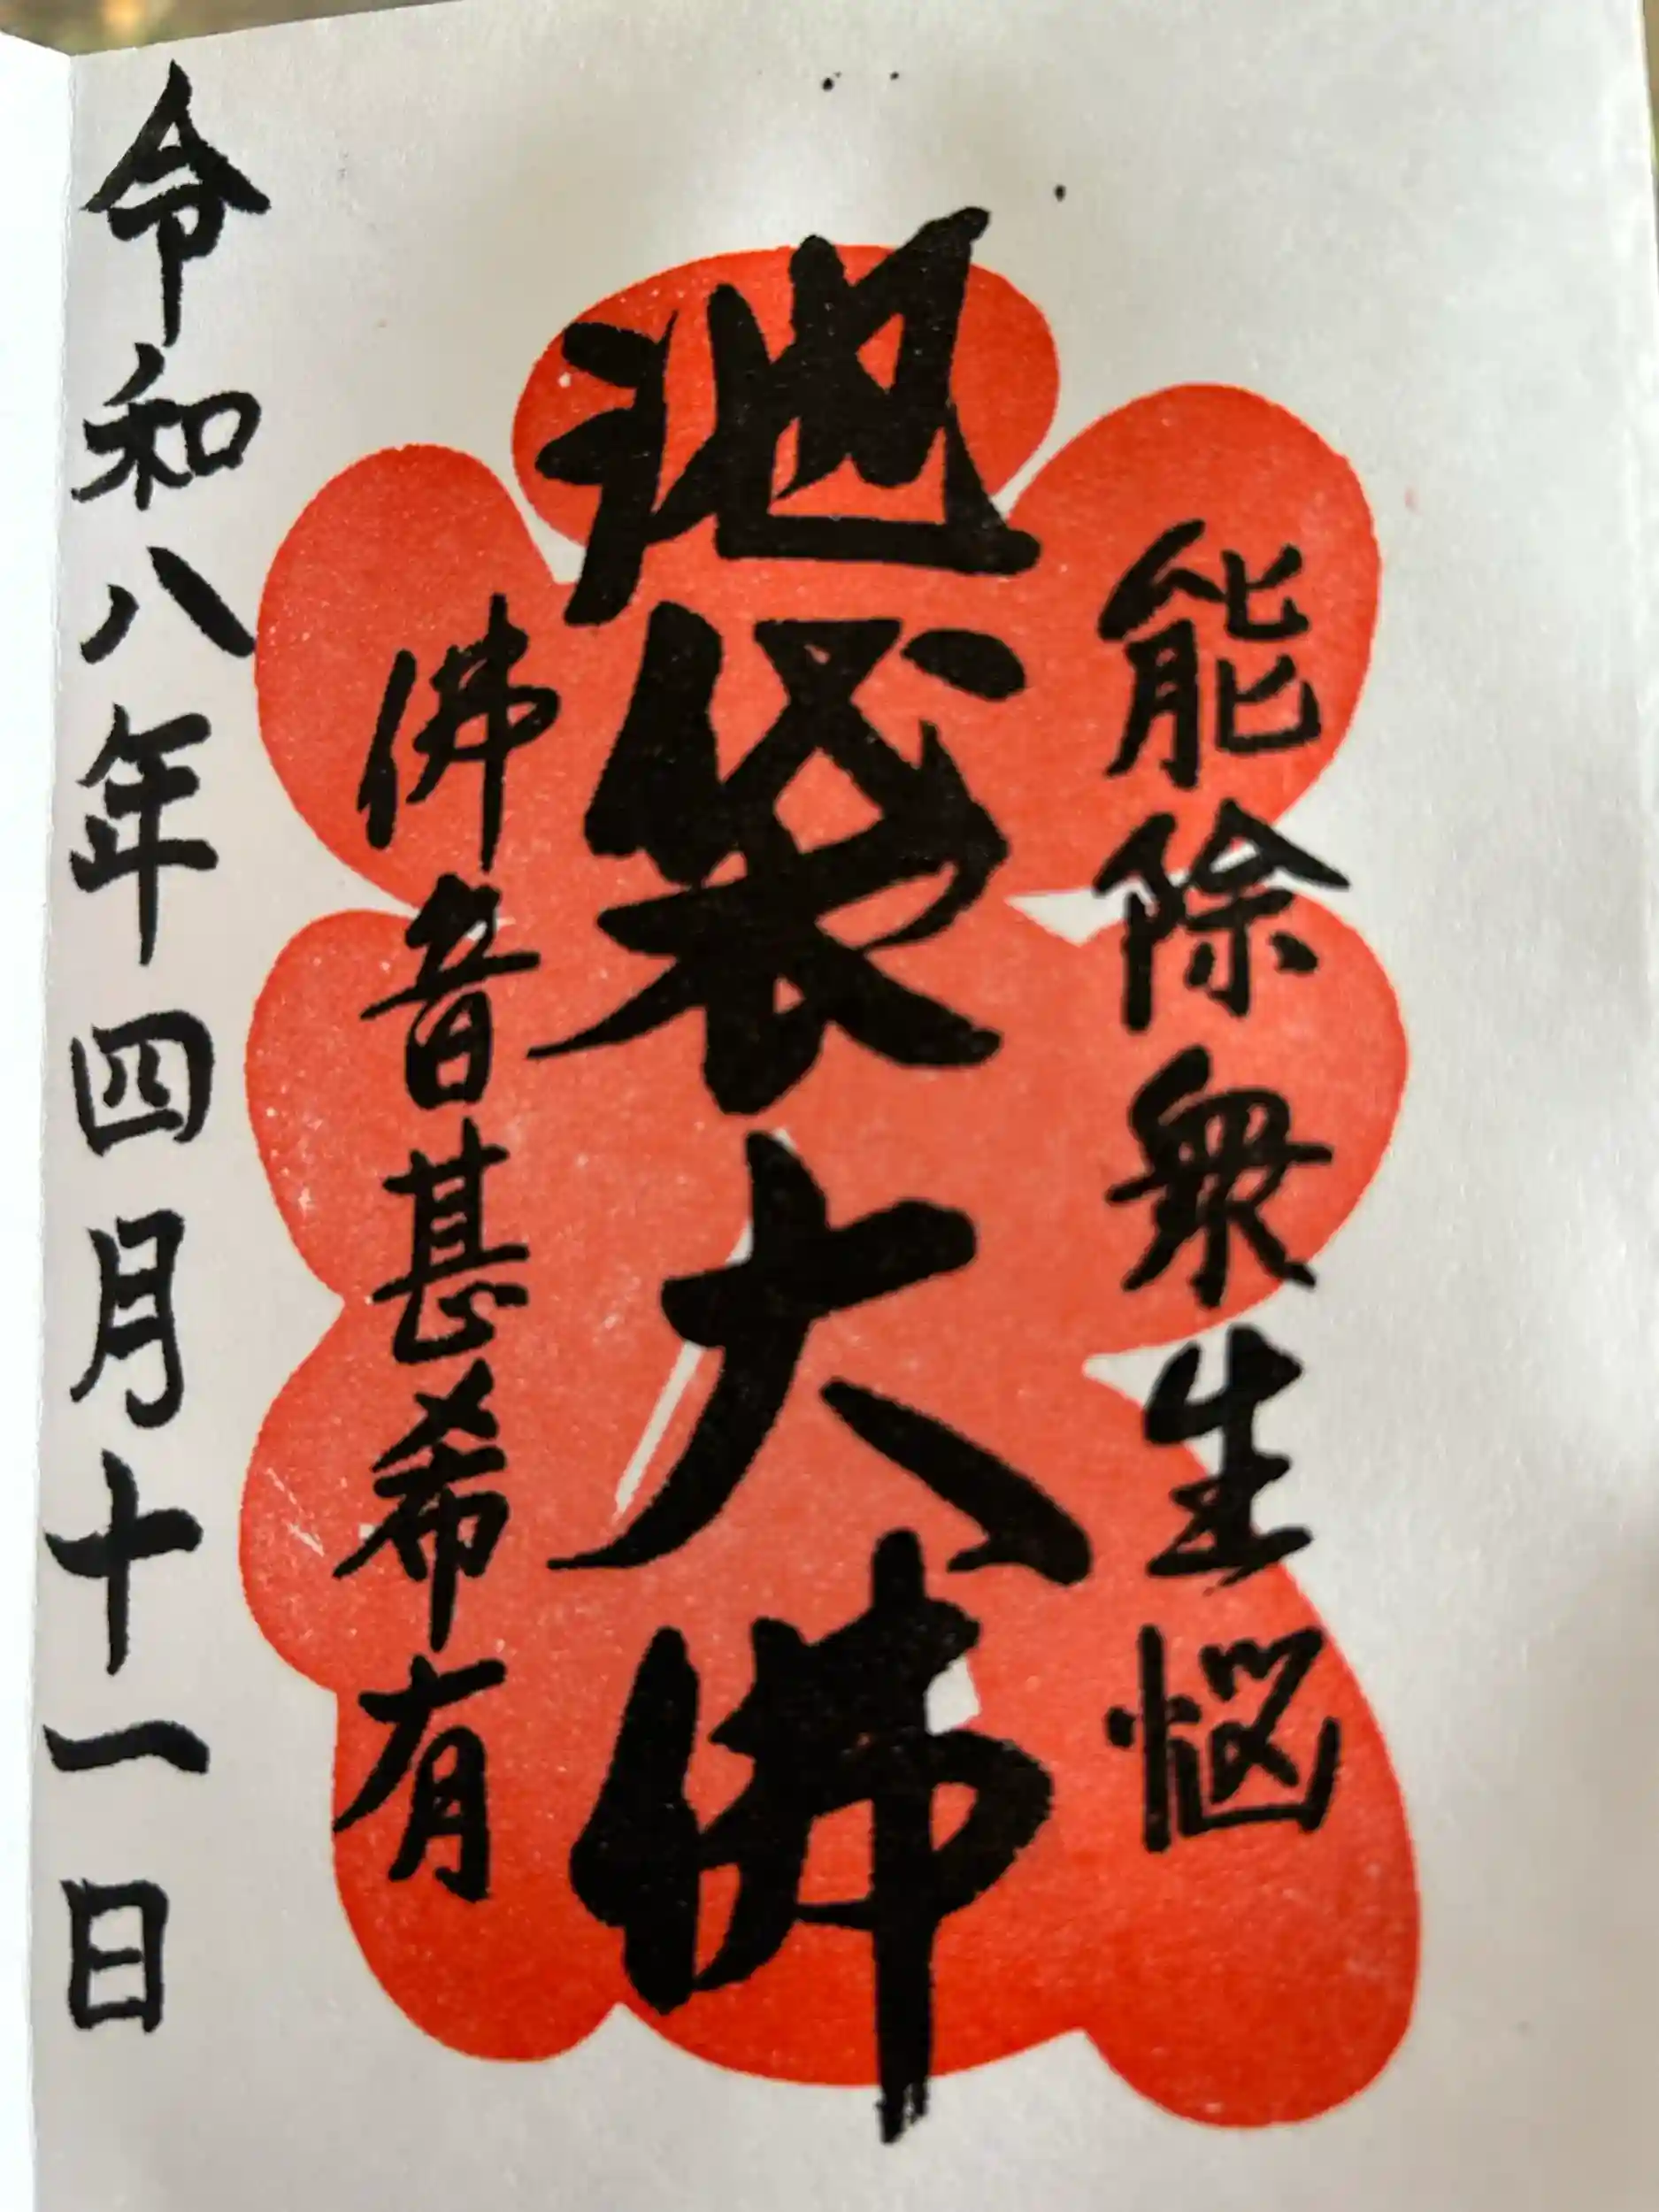 能除衆生悩
池袋大佛
佛音甚希有
令和八年四月十一日